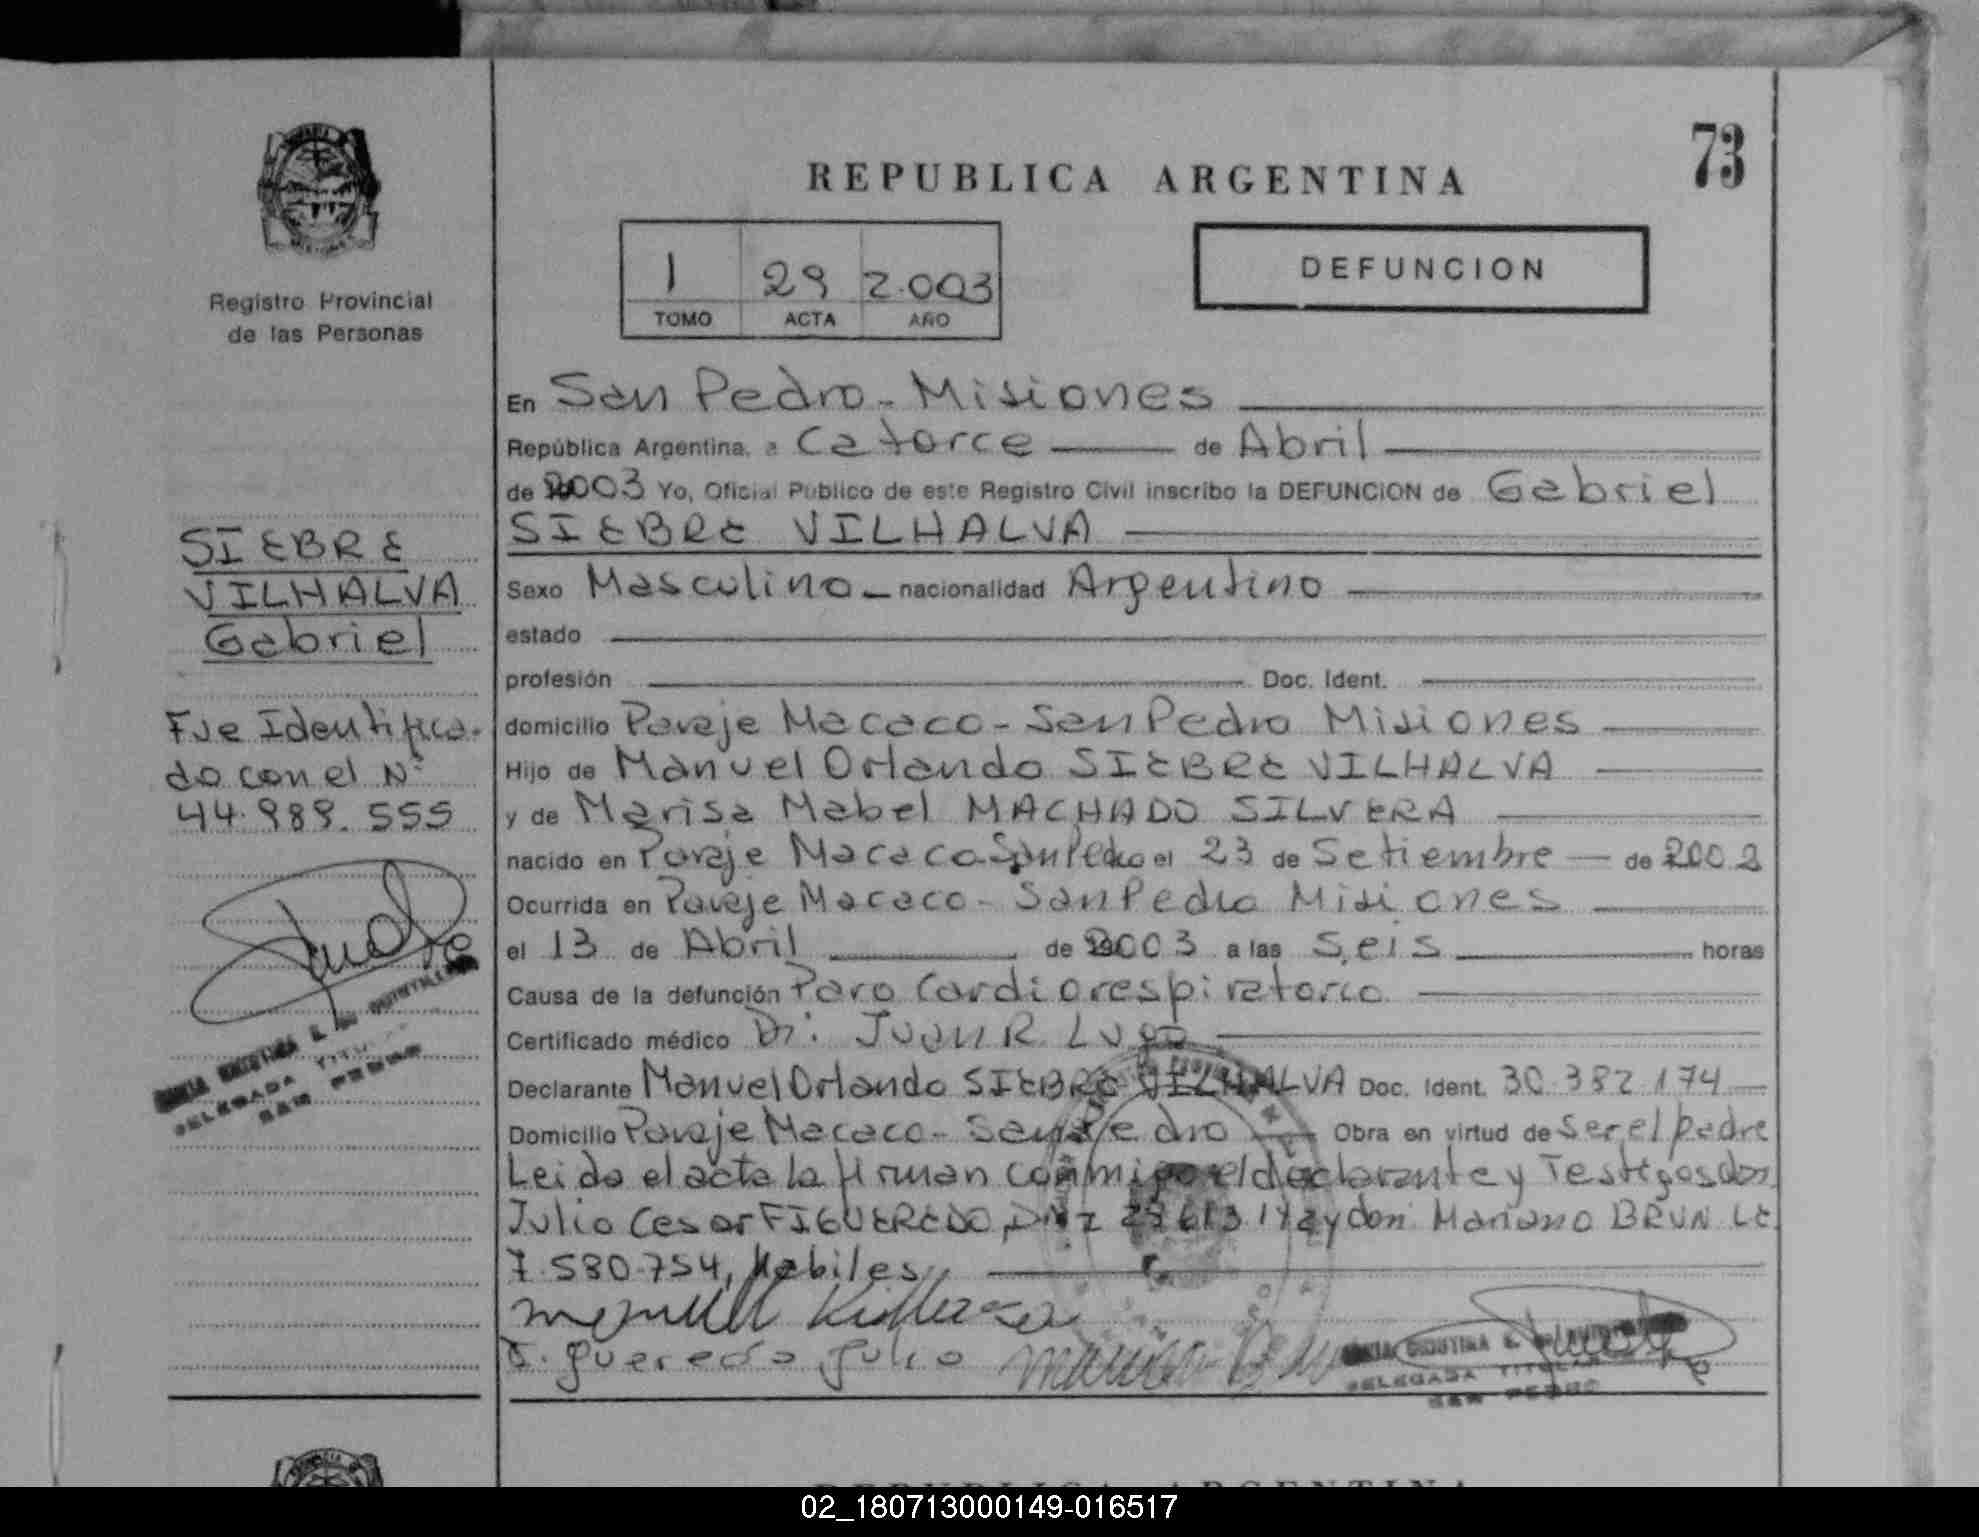 73
REPUBLICA ARGENTINA
Registro Provincial
de las Personas
1 29 2.003
TOMO ACTA AÑO
DEFUNCION
SIEBRE
VILHALVA
Gabriel
Fue Identifica-
do con el Nº
44.989.555
DELEGADA TITU
SAN PEDRO
En San Pedro - Misiones
República Argentina, a Catorce de Abril
de 2003 Yo, Oficial Público de este Registro Civil inscribo la DEFUNCION de Gabriel
SIEBRE VILHALVA
Sexo Masculino nacionalidad Argentino
estado
profesión Doc. Ident.
domicilio Paraje Macaco - San Pedro Misiones
Hijo de Manuel Orlando SIEBRE VILHALVA
y de Marisa Mabel MACHADO SILVERA
nacido en Paraje Macaco San Pedro el 23 de Setiembre de 2002
Ocurrida en Paraje Macaco - San Pedro Misiones
el 13 de Abril de 2003 a las Seis horas
Causa de la defunción Paro Cardiorespiratorio
Certificado médico Dr. Juan R. Lugo
Declarante Manuel Orlando SIEBRE VILHALVA Doc. Ident. 30.382.174
Domicilio Paraje Macaco - San Pedro Obra en virtud de Ser el padre
Leida el acta la firman conmigo el declarante y Testigos don
Julio Cesar FIGUEREDO, DNI y don Mariano BRUN LE.
7.580.754, Habiles
DELEGADA TITULAR
SAN PEDRO
REPUBLICA ARGENTINA
02_180713000149-016517